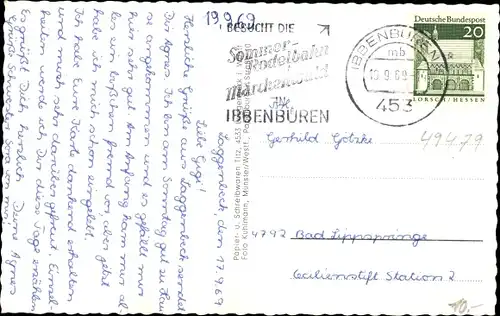 19.9.69
BESUCHT DIE
Sommer-
Rodelbahn
Märchenwald
IN
IBBENBÜREN
IBBENBÜREN
mb
453
Deutsche Bundespost
20
LORSCH / HESSEN
Laggenbeck, den 17.9.69
Liebe Gigi!
Herzliche Grüße aus Laggenbeck sendet
Dir Agnes. Ich bin am Sonntag gut zu Haus
angekommen und es gefällt mir
hier sehr gut. Am Anfang kam mir al-
les ein bißchen fremd vor, aber jetzt
habe ich mich schon eingelebt.
Ich habe Eure Karte dankend erhalten
und mich sehr darüber gefreut.
werde ich Dir diese Tage erzählen
Es grüßt Dich herzlich Deine Agnes
von mir.
Papier- u. Schreibwaren
Foto Kuhlmann, Münster/Westf.
Gerhild Gotzke
49479
4792 Bad Lippspringe
Cäcilienstift Station 2
10.-